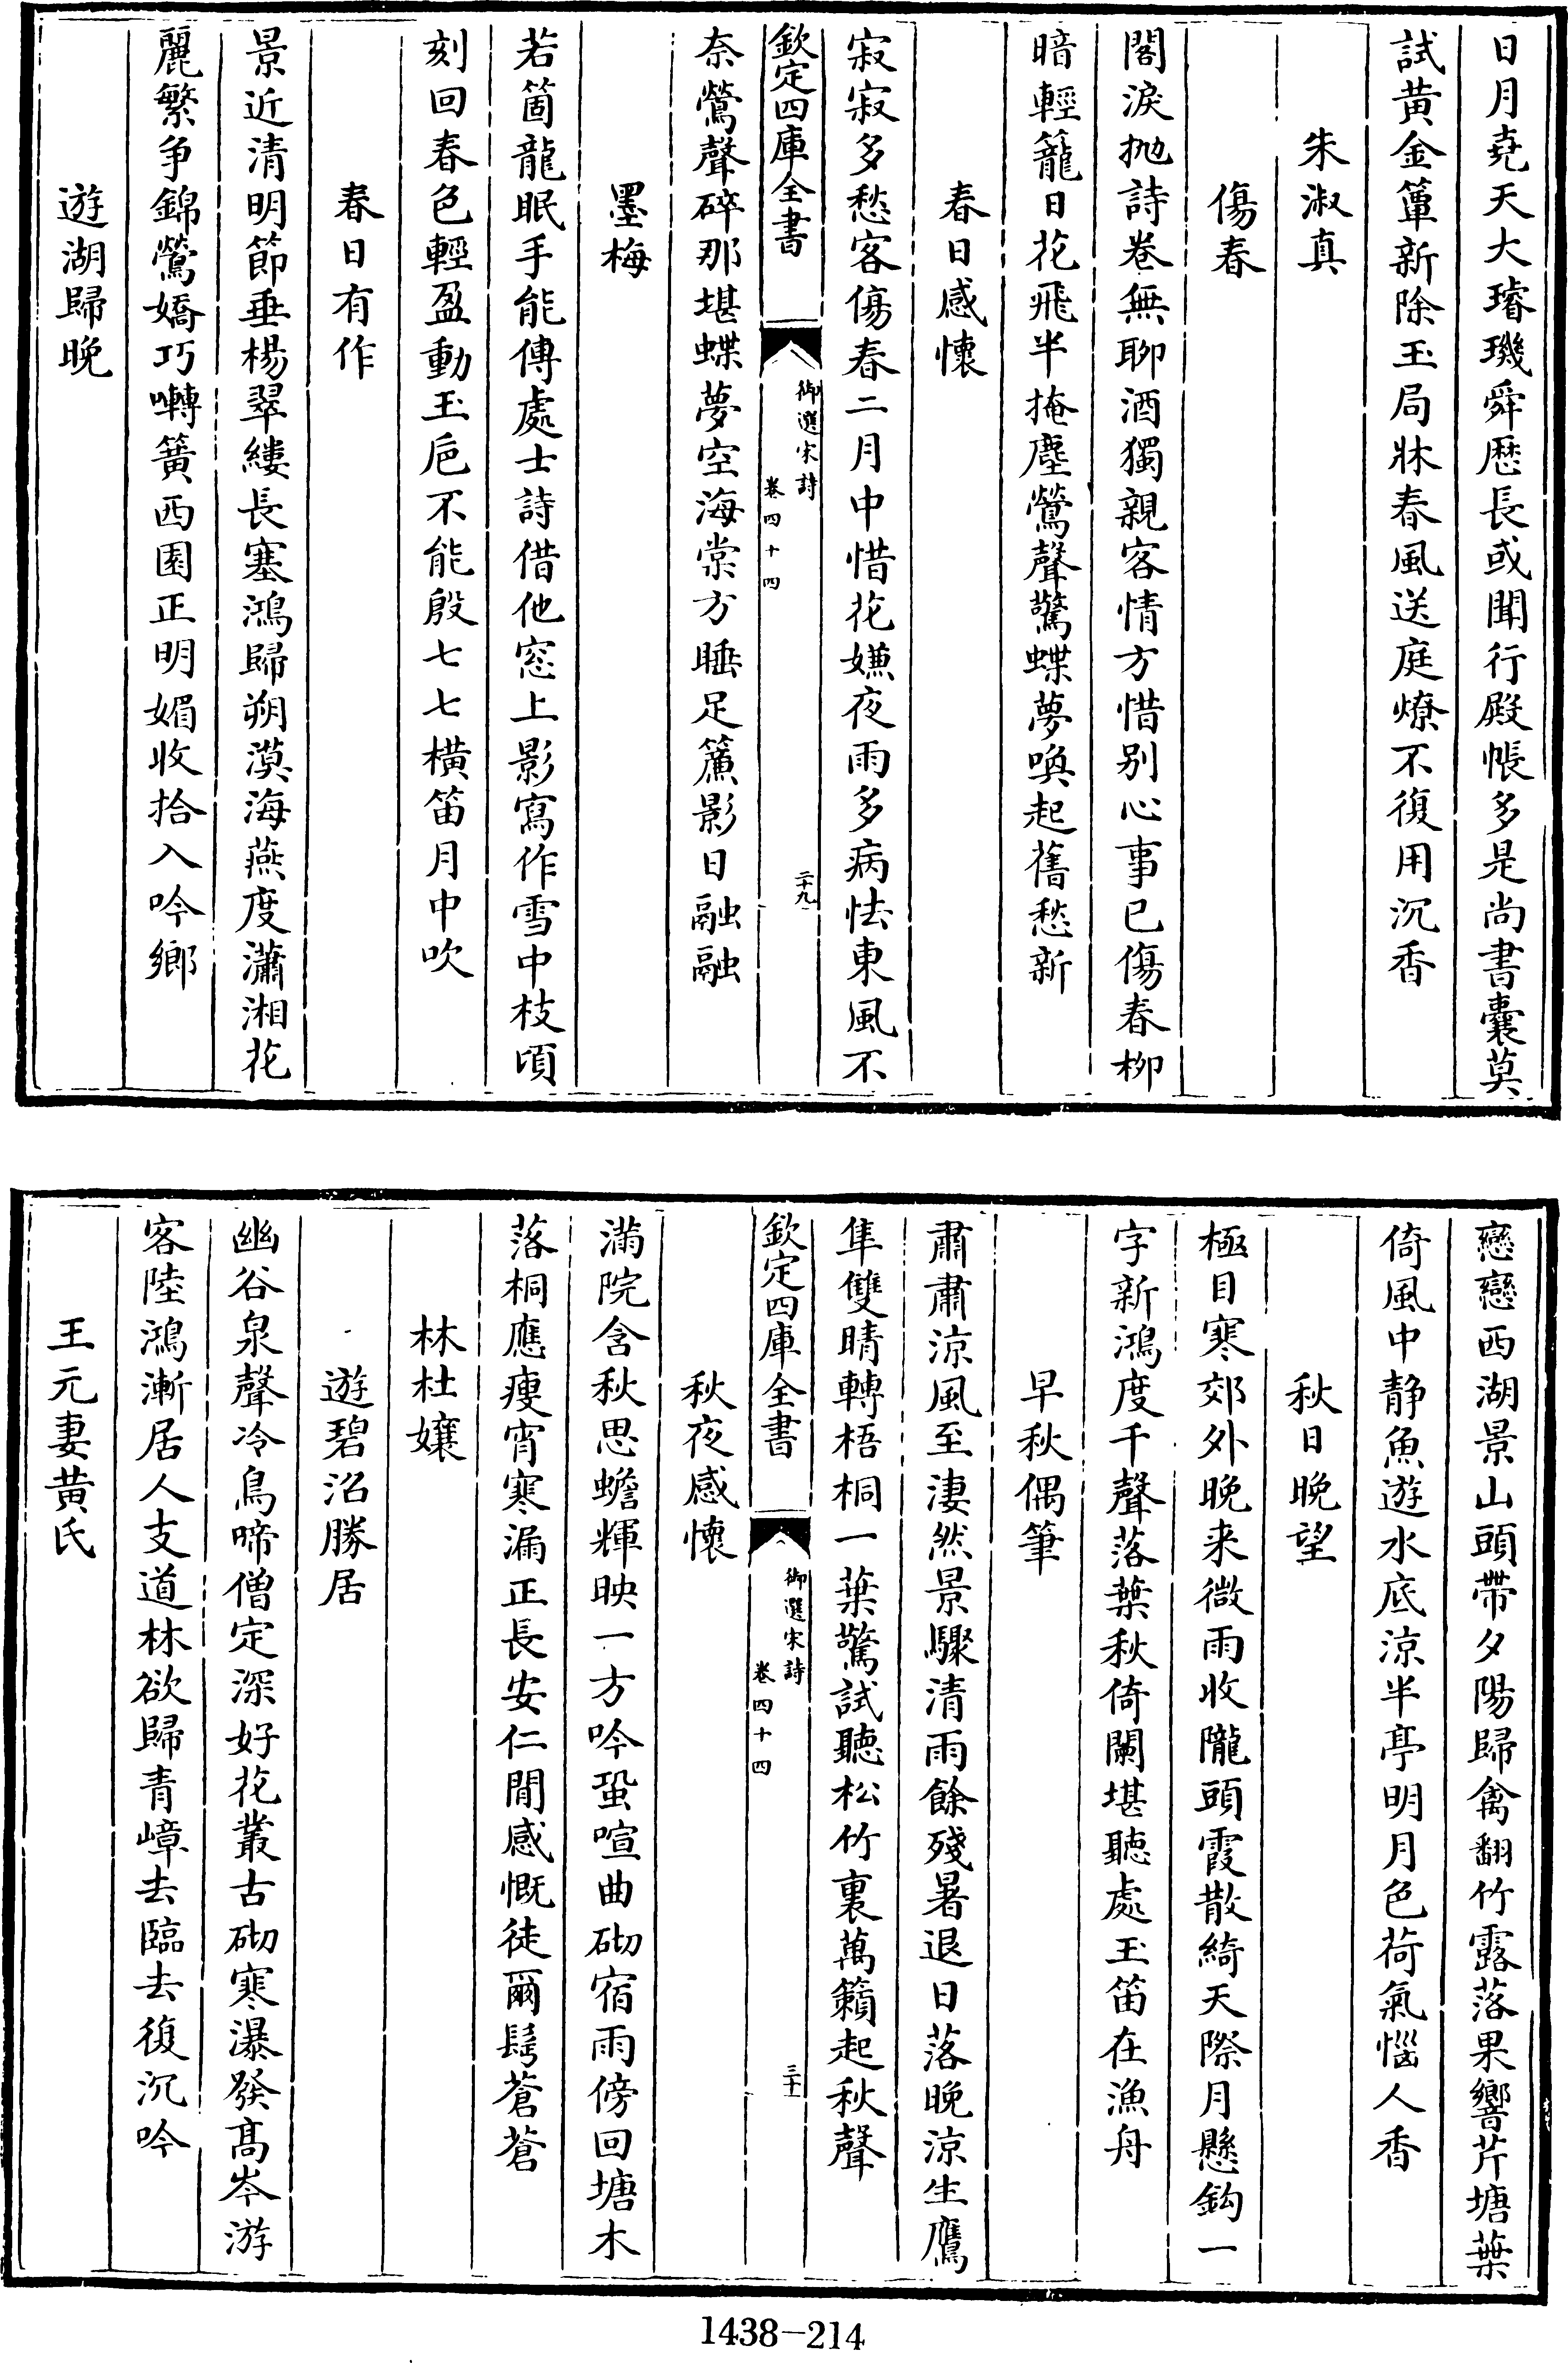 日月堯天大璿璣舜歴長或聞行殿帳多是尚書囊莫
試黄金簞新除玉局牀春風送庭燎不復用沉香
朱淑真
傷春
閣淚抛詩卷無聊酒獨親客情方惜别心事已傷春柳
暗輕籠日花飛半掩塵鶯聲驚蝶夢喚起舊愁新
春日感懷
寂寂多愁客傷春二月中惜花嫌夜雨多病怯東風不
欽定四庫全書
御選宋詩
卷四十四
二十九
奈鶯聲碎那堪蝶夢空海棠方睡足簾影日融融
墨梅
若箇龍眠手能傳處士詩借他窓上影寫作雪中枝頃
刻回春色輕盈動玉巵不能殷七七横笛月中吹
春日有作
景近清明節垂楊翠縷長塞鴻歸朔漠海燕度瀟湘花
麗繁争錦鶯嬌巧囀簧西園正明媚收拾入吟鄉
遊湖歸晚
戀戀西湖景山頭帶夕陽歸禽翻竹露落果響芹塘葉
倚風中静魚遊水底涼半亭明月色荷氣惱人香
秋日晚望
極目寒郊外晚来微雨收隴頭霞散綺天際月懸鈎一
字新鴻度千聲落葉秋倚闌堪聽處玉笛在漁舟
早秋偶筆
肅肅涼風至淒然景驟清雨餘殘暑退日落晚涼生鷹
隼雙睛轉梧桐一葉驚試聽松竹裏萬籟起秋聲
欽定四庫全書
御選宋詩
卷四十四
三十
秋夜感懷
滿院含秋思蟾輝映一方吟蛩喧曲砌宿雨傍回塘木
落桐應瘦宵寒漏正長安仁閒感慨徒爾髩蒼蒼
林杜孃
遊碧沼勝居
幽谷泉聲冷鳥啼僧定深好花叢古砌寒瀑發髙岑游
客陸鴻漸居人支道林欲歸青嶂去臨去復沉吟
王元妻黄氏
1438-214